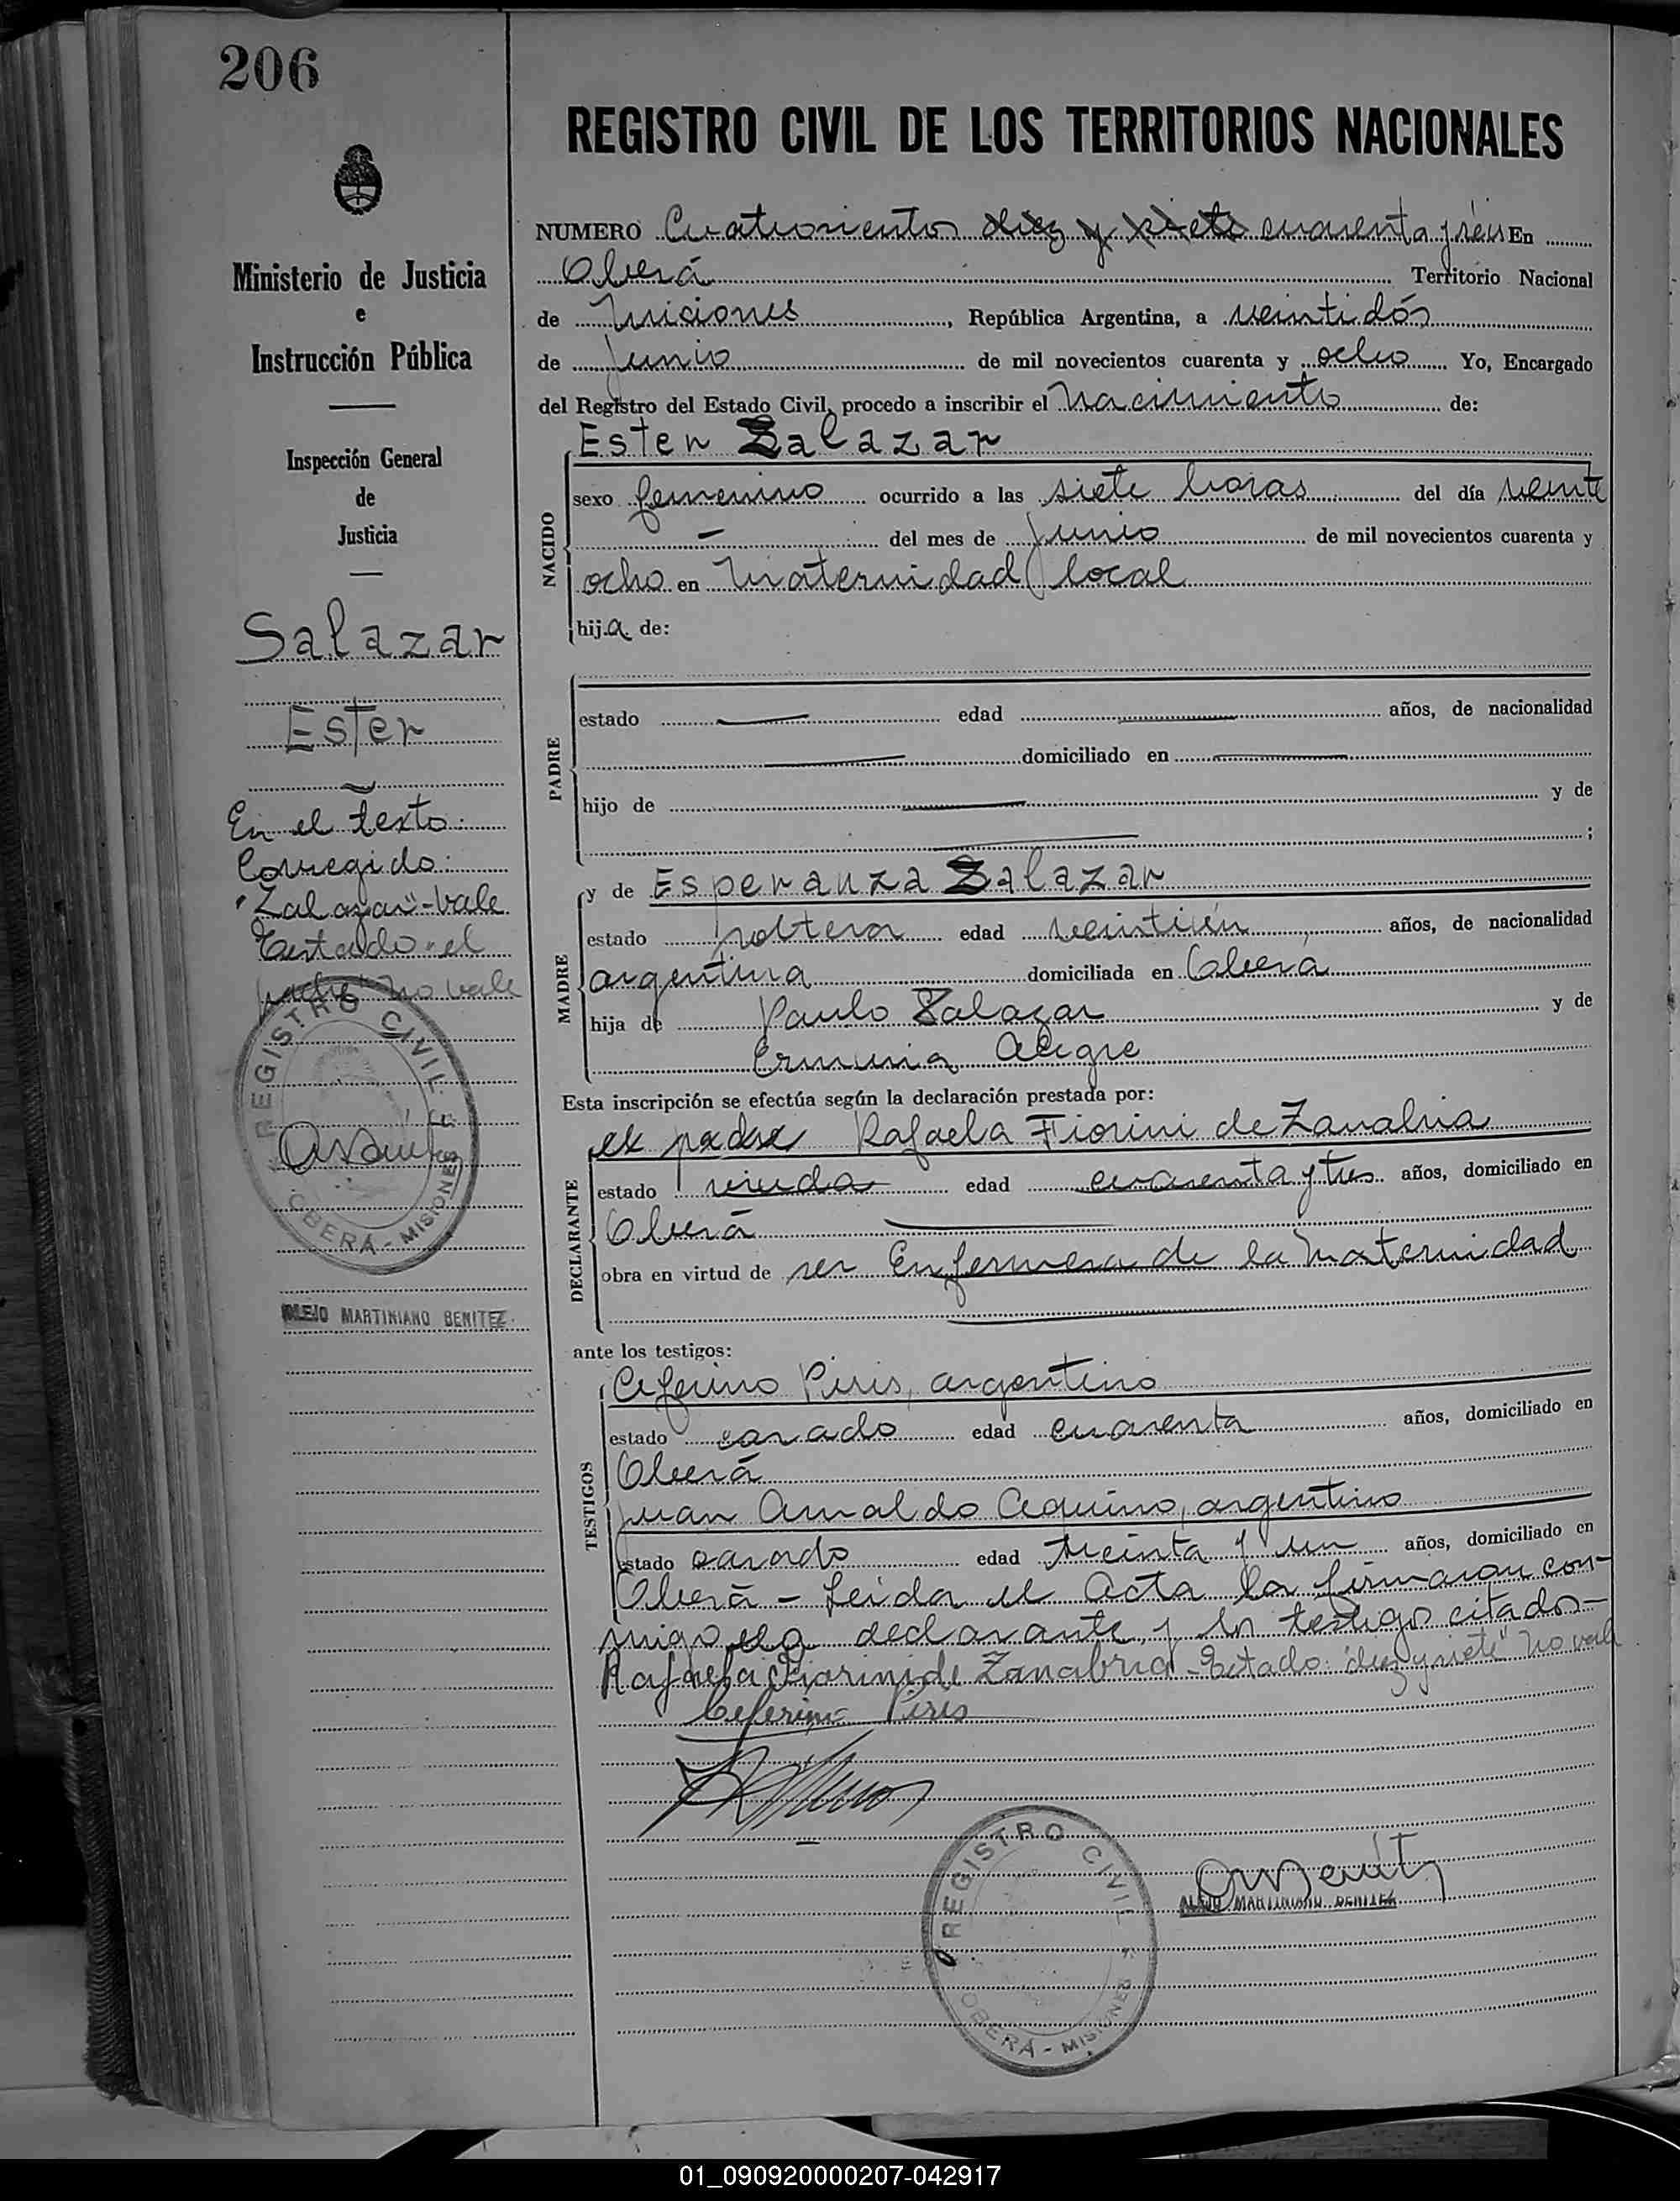 206
REGISTRO CIVIL DE LOS TERRITORIOS NACIONALES
Ministerio de Justicia
e
Instrucción Pública
Inspección General
de
Justicia
Salazar
Ester
En el texto:
Corregido:
"Zalazar"-vale
Testado "el
padre" no vale
REGISTRO CIVIL
OBERÁ - MISIONES
ALEJO MARTINIANO BENITEZ
NUMERO Cuatrocientos diez y siete cuarenta y seis En
Oberá Territorio Nacional
de Misiones, República Argentina, a veintidós
de Junio de mil novecientos cuarenta y ocho Yo, Encargado
del Registro del Estado Civil, procedo a inscribir el nacimiento de:
Ester Salazar
NACIDO
sexo femenino ocurrido a las siete horas del día veinte
— del mes de Junio de mil novecientos cuarenta y
ocho en Maternidad local
hija de:
PADRE
estado — edad — años, de nacionalidad
— domiciliado en —
hijo de — y de
— ;
MADRE
y de Esperanza Salazar
estado soltera edad veintiún años, de nacionalidad
argentina domiciliada en Oberá
hija de Paulo Zalazar y de
Erminia Alegre
Esta inscripción se efectúa según la declaración prestada por:
DECLARANTE
el padre Rafaela Fiorini de Zanabria
estado viuda edad cuarenta y tres años, domiciliado en
Oberá —
obra en virtud de ser Enfermera de la Maternidad
ante los testigos:
TESTIGOS
Ceferino Piris, argentino
estado casado edad cuarenta años, domiciliado en
Oberá
Juan Arnaldo Aquino, argentino
estado casado edad treinta y un años, domiciliado en
Oberá - Leida el Acta la firmaron con-
migo la declarante, y los testigos citados-
Rafaela Fiorini de Zanabria - Testado: "diez y siete" no vale
Ceferino Piris
REGISTRO CIVIL
OBERÁ - MISIONES
ALEJO MARTINIANO BENITEZ
01_090920000207-042917